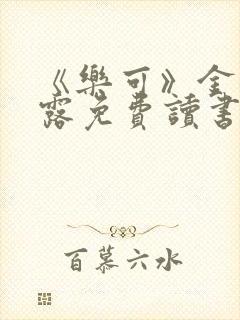 《樂可》金
露免費讀書
百慕六水